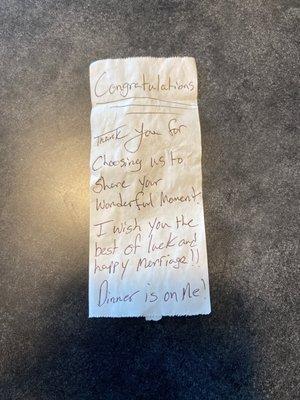 Congratulations
Thank You for
Choosing us to
Share your
Wonderful Moment.
I wish you the
best of luck and
happy Marriage!!
Dinner is on Me!